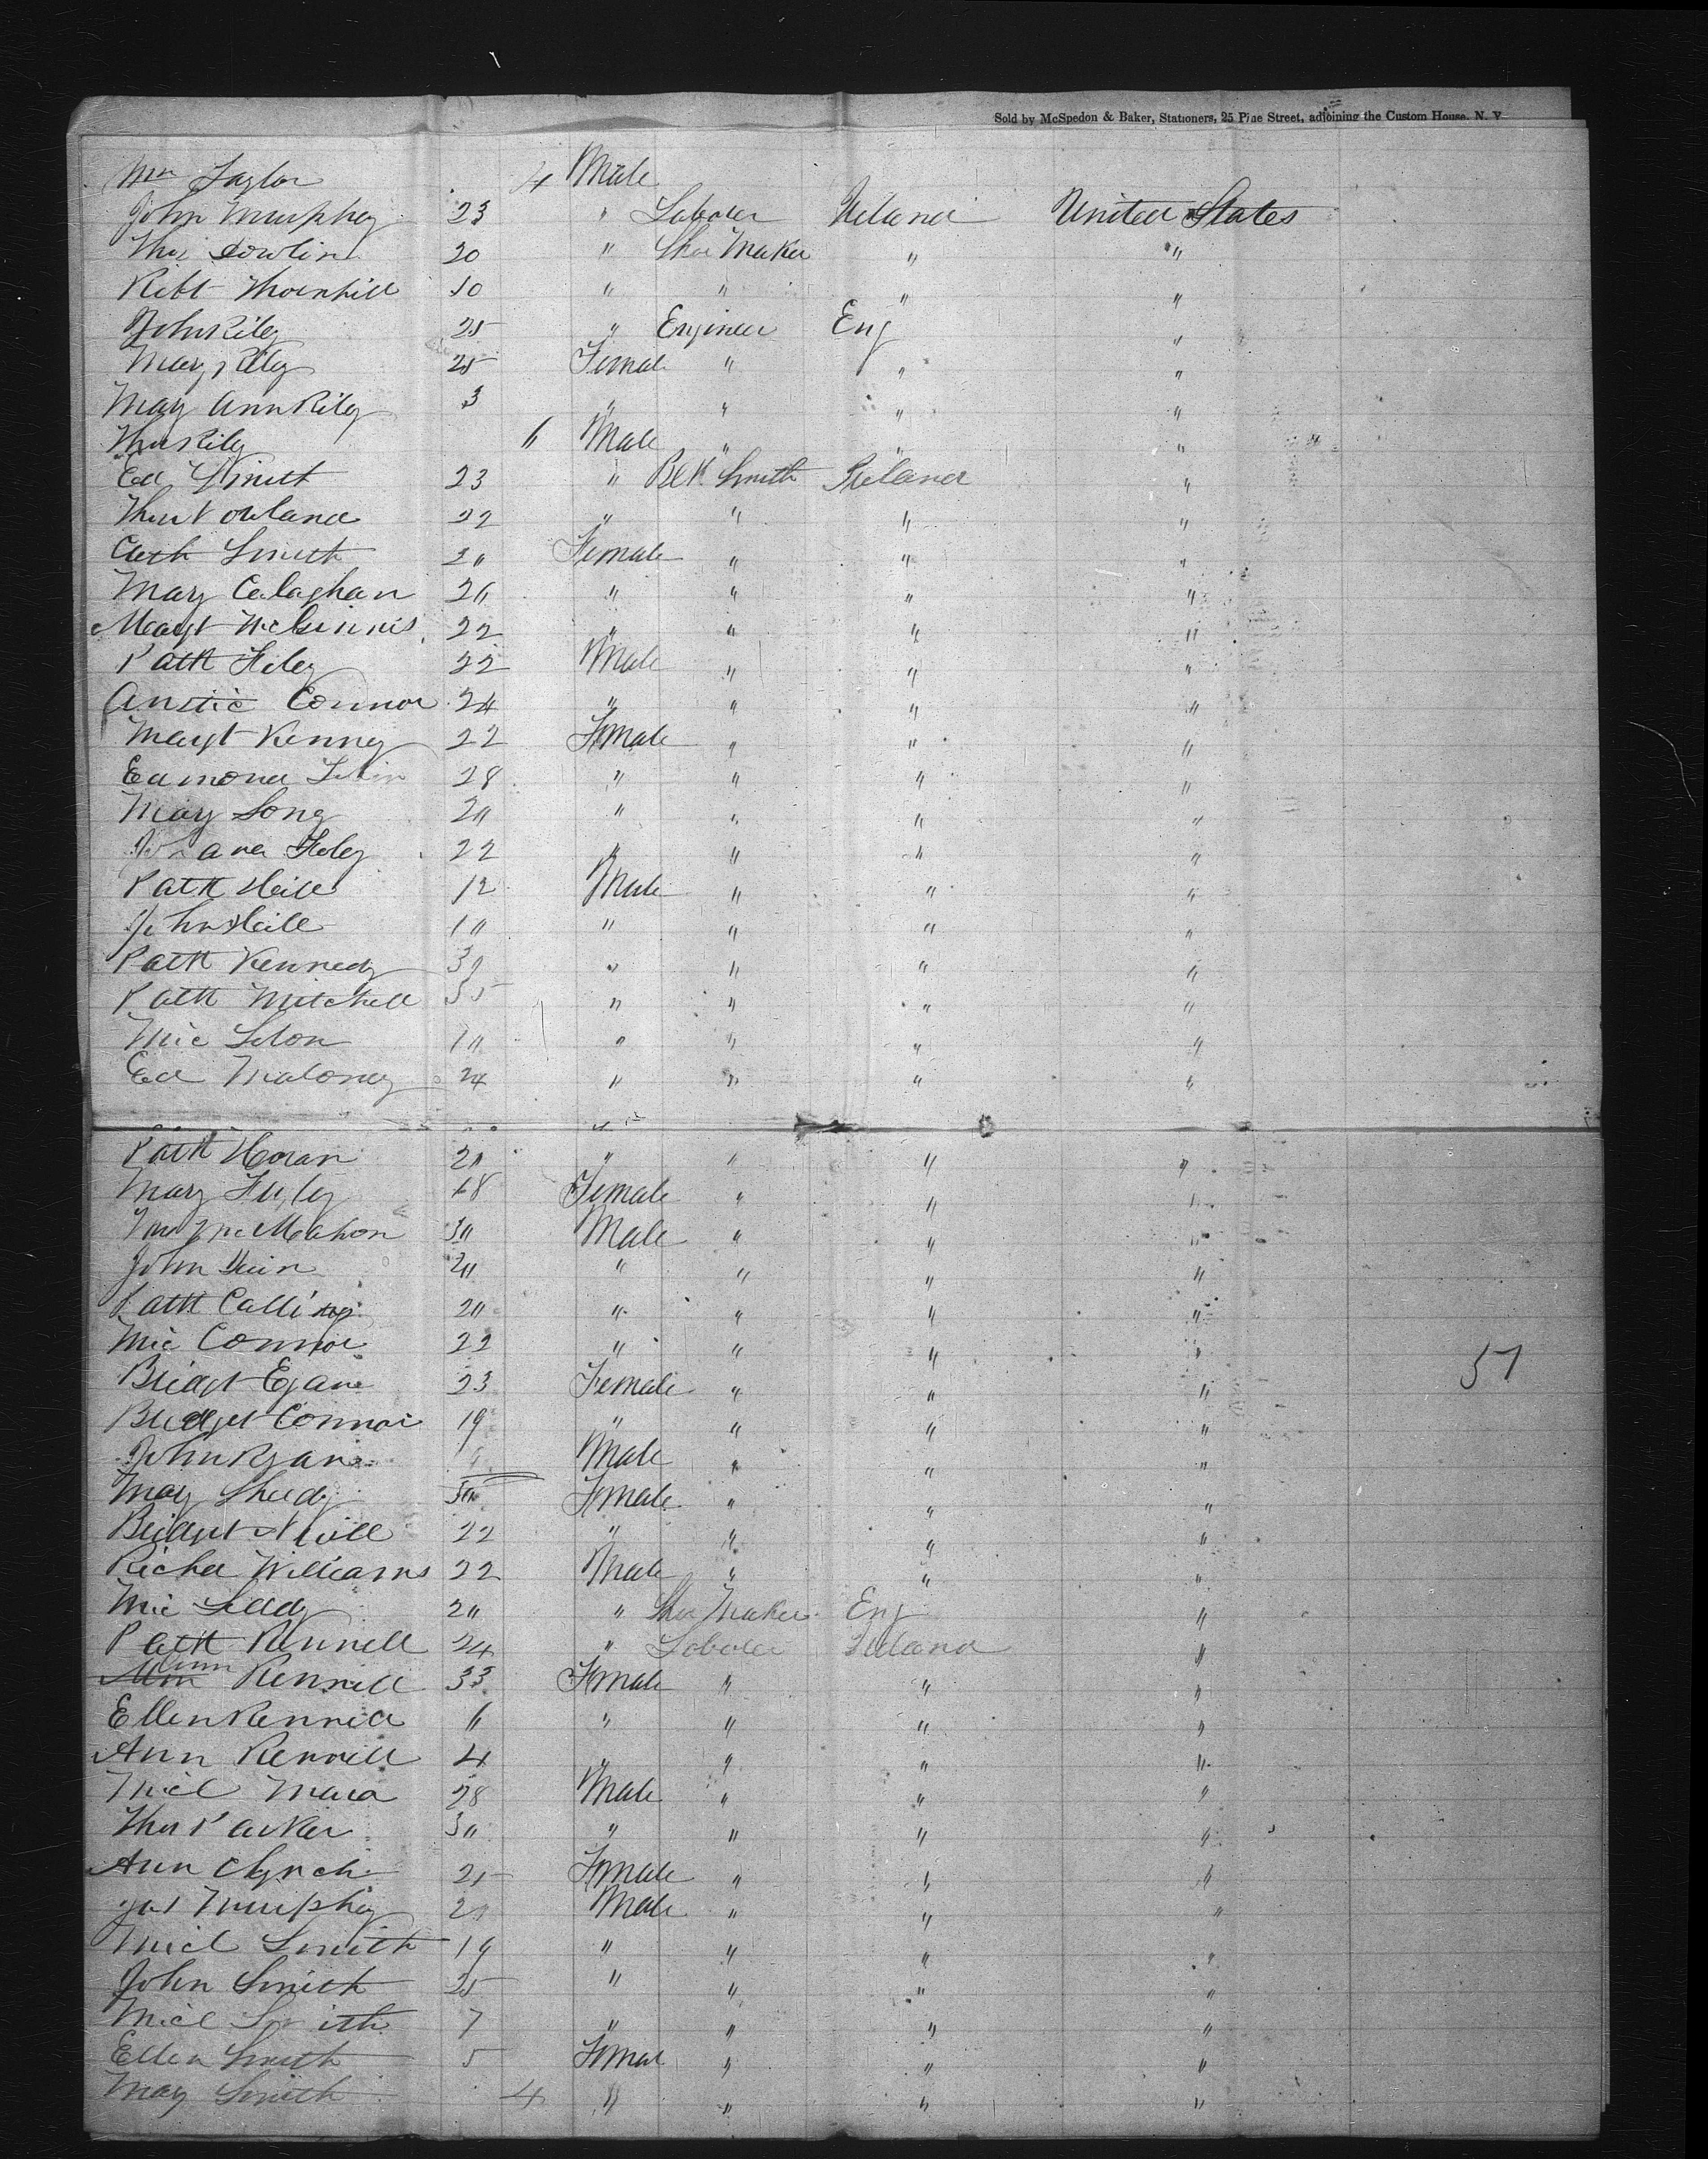 Sold by McSpedon & Baker, Stationers, 25 Pine Street, adjoining the Custom House, N. Y.
Wm Taylor 4 Male
John Murphey 23 " Laborer Ireland United States
Thos 20 " Shoe Maker " "
Robt Thornhill 30 " " " "
John Riley 25 " Engineer Eng "
Mary Riley 25 Female " " "
Mary Ann Riley 3 " " " "
Thos Riley 6 Male " " "
Ed Smith 23 " Blk Smith Ireland "
Thos 22 " " " "
Cath Smith 20 Female " " "
Mary Calaghan 20 " " " "
Margt McGinnis 22 " " " "
Patk 22 Male " " "
Connor 24 " " " "
Margt Kenney 22 Female " " "
Edmond 28 " " " "
Mary Long 20 " " " "
Foley 22 " " " "
Patk 12 Male " " "
John 10 " " " "
Patk Kennedy 30 " " " "
Patk Mitchell 35 " " " "
Mic " " " "
Ed Maloney 24 " " " "
Patk Horan 20 " " " "
Mary 18 Female " " "
McMahon 30 Male " " "
John 20 " " " "
Patk 20 " " " "
Mic Connor 22 " " " "
51
Bridgt Egan 23 Female " " "
Bridget Connor 19 " " " "
John Ryan Male " " "
Mary Sheedy 30 Female " " "
Bridget 22 " " " "
Richd Williams 22 Male " " "
Mic 20 " Shoe Maker Eng "
Patk Rennell 24 " Laborer Ireland "
Ann Rennell 33 Female " " "
Ellen Rennell 6 " " " "
Ann Rennell 4 " " " "
Micl 28 Male " " "
Thos Parker 30 " " " "
Ann Lynch 25 Female " " "
Jas Murphey 20 Male " " "
Micl Smith 19 " " " "
John Smith 25 " " " "
Micl Smith 7 " " " "
Ellen Smith 5 Female " " "
Mary Smith 4 " " " "